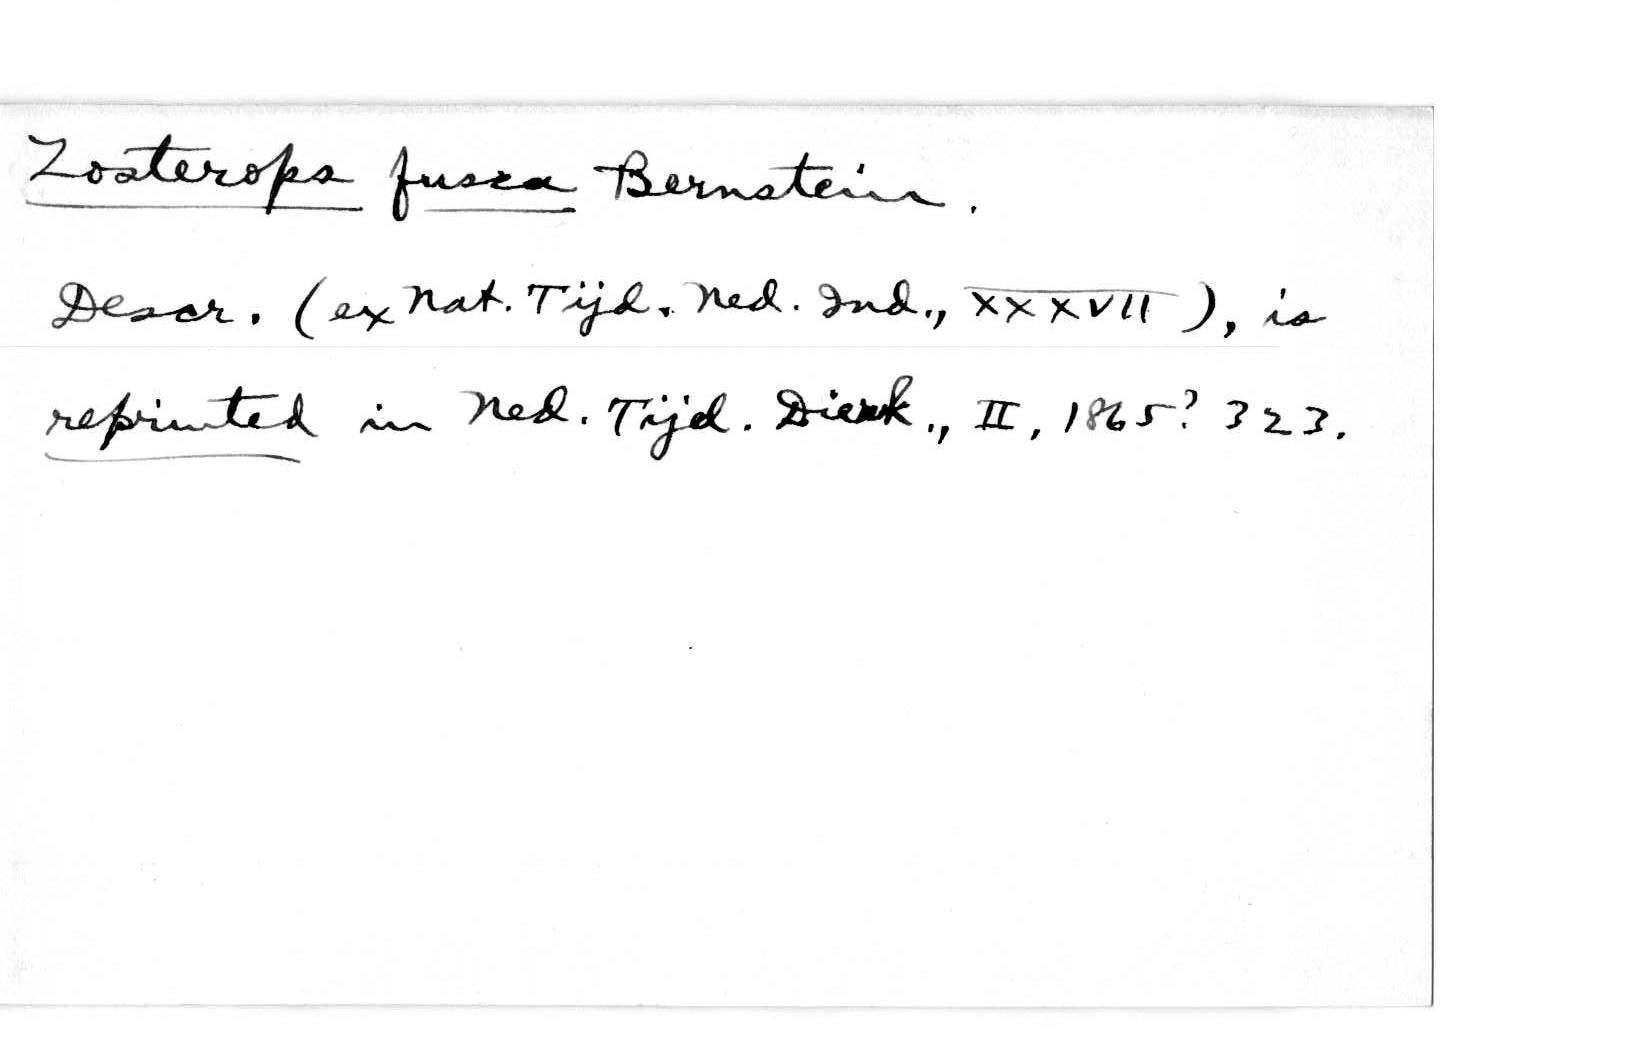 Zosterops fusca Bernstein.
Descr. (ex Nat. Tijd. Ned. Ind., XXXVII), is
reprinted in Ned. Tijd. Dierk., II, 1865? 323.